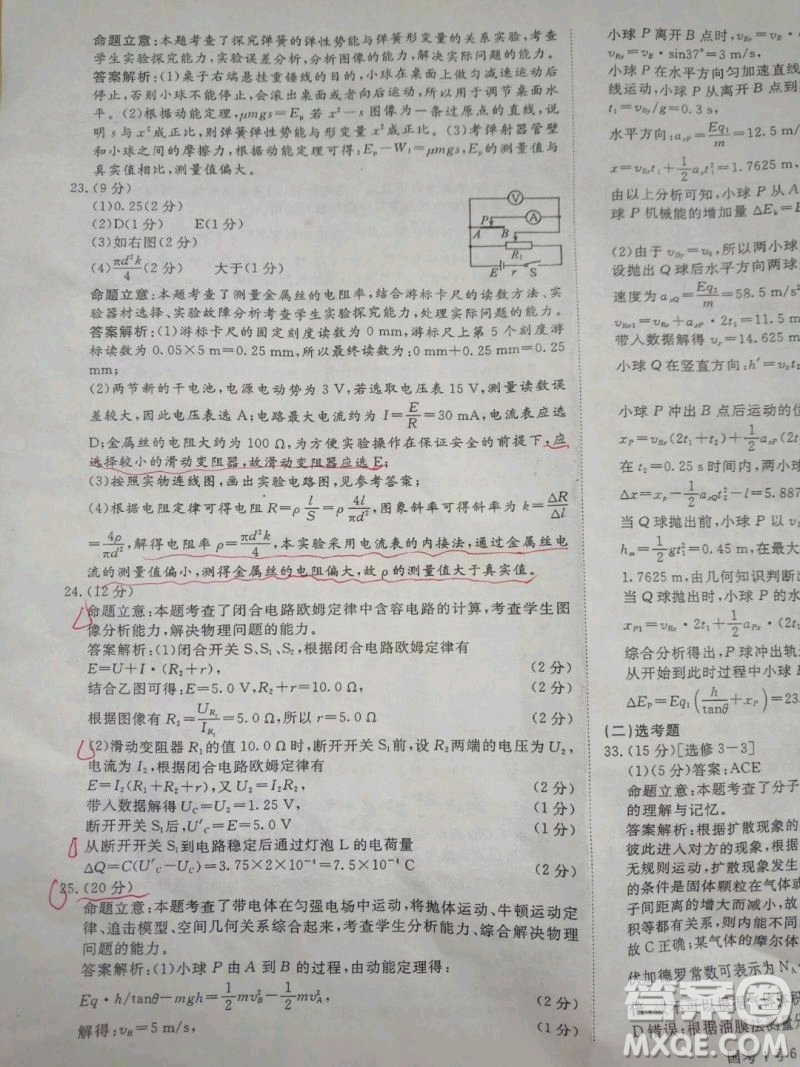 命题立意：本题考查了探究弹簧的弹性势能与弹簧形变量的关系实验，考查
学生实验探究能力，实验误差分析，分析图像的能力，解决实际问题的能力。
答案解析：(1)桌子右端悬挂重锤线的目的，小球在桌面上做匀减速运动后
停止，否则小球不能停止，会滚出桌面或者向后运动，所以用于判断桌面水平。
(2)根据动能定理，μmgs=Eₚ 若 x²－s 图像为一条过原点的直线，说
明 s 与 x² 成正比，则弹簧弹性势能与形变量 x² 成正比。(3)考弹射器管壁
和小球之间的摩擦力，根据动能定理可得：Eₚ－W₁=μmgs，测量值与
真实值相比，测量值偏大。
23.(9 分)
(1)0.25(2 分)
(2)D(1 分)　E(1 分)
(3)如右图(2 分)
(4)πd²k/4(2 分)　大于(1 分)
V
A
P
A B
R₁
E r S
命题立意：本题考查了测量金属丝的电阻率，结合游标卡尺的读数方法、实
验器材选择、实验故障分析考查学生实验探究能力，处理实际问题的能力。
答案解析：(1)游标卡尺的固定刻度读数为 0 mm，游标尺上第 5 个刻度游
标读数为 0.05×5 m=0.25 mm，所以最终读数为：0 mm+0.25 mm=0.25
mm；
(2)两节新的干电池，电源电动势为 3 V，若选取电压表 15 V，测量读数误
差较大，因此电压表选 A；电路最大电流约为 I=E/R=30 mA，电流表应选
D；金属丝的电阻约为 100 Ω，为方便实验操作在保证安全的前提下，应
选择较小的滑动变阻器，故滑动变阻器应选 E；
(3)按照实物连线图，画出实验电路图，见参考答案；
(4)根据电阻定律可得电阻 R=ρ l/S=ρ 4l/πd²，图象斜率可得斜率为 k=ΔR/Δl
=4ρ/πd²，解得电阻率 ρ=πd²k/4，本实验采用电流表的内接法，通过金属丝电
流的测量值偏小，测得金属丝的电阻偏大，故 ρ 的测量值大于真实值。
24.(12 分)
命题立意：本题考查了闭合电路欧姆定律中含容电路的计算，考查学生图
像分析能力，解决物理问题的能力。
答案解析：(1)闭合开关 S、S₁、S₂，根据闭合电路欧姆定律有
E=U+I·(R₂+r)，(2 分)
结合乙图可得：E=5.0 V，R₂+r=10.0 Ω，(2 分)
根据图像有 R₂=U_R₁/I_R₁=5.0 Ω，所以 r=5.0 Ω(2 分)
(2)滑动变阻器 R₁ 的值 10.0 Ω 时，断开开关 S₁ 前，设 R₂ 两端的电压为 U₂，
电流为 I₂，根据闭合电路欧姆定律有
E=I₂(R₁+R₂+r)，又 U₂=I₂R₂，(2 分)
带入数据解得 U_C=U₂=1.25 V，(1 分)
断开开关 S₁ 后，U′_C=E=5.0 V(1 分)
从断开开关 S₁ 到电路稳定后通过灯泡 L 的电荷量
ΔQ=C(U′_C－U_C)=3.75×2×10⁻⁴=7.5×10⁻⁴ C(2 分)
25.(20 分)
命题立意：本题考查了带电体在匀强电场中运动，将抛体运动、牛顿运动定
律、追击模型、空间几何关系综合起来，考查学生分析能力、综合解决物理
问题的能力。
答案解析：(1)小球 P 由 A 到 B 的过程，由动能定理得：
Eq·h/tanθ－mgh=1/2mv_B²－1/2mv_A²，(2 分)
解得：v_B=5 m/s，(1 分)
小球 P 离开 B 点时，v_Bx
v_By=v_B·sin37°=3 m/s，
小球 P 在水平方向匀加速直线
线运动，小球 P 从离开 B 点到
t₁=v_By/g=0.3 s，
水平方向：a_xP=Eq₁/m=12.5 m/
x=v_Bx t₁+1/2 a_x t₁²=1.7625 m，
由以上分析可知，小球 P 从 A
球 P 机械能的增加量 ΔE_k=E
(2)由于 v_By=v₀，所以两小球
设抛出 Q 球后小球在水平方
速度为 a_xQ=Eq₁/m=58.5 m/s
v_Bx1=v_Bx·2t₁=11.5 m
带入数据解得 v_x=14.625 m
小球 Q 在竖直方向：h′=v₀t
小球 P 冲出 B 点后运动的位
x_P=v_Bx(2t₁+t₂)+1/2a_xP(
在 t₂=0.25 s 时间内，两小
Δx=x_P－1/2a_xQ t₂²=5.887
当 Q 球抛出前，小球 P 在竖
h_m=1/2gt₁²=0.45 m，在最大
1.7625 m，由几何知识判断出
当 Q 球抛出时，小球 P 的水
x_P1=v_Bx·2t₁+1/2a_Px·(
综合分析得出，P 球冲出轨道
从开始到此时过程中小球
ΔE_P=Eq₁(h/tanθ+x_P)=23.
(二)选考题
33.(15 分)[选修 3－3]
(1)(5 分)答案：ACE
命题立意：本题考查了分子
的理解与记忆。
答案解析：根据扩散现象的
彼此进入对方的现象，根据
无规则运动，扩散现象的
的条件是固体颗粒在气体或
子间距离的增大而减小，故
等都有关系，则内能大小与
故 C 正确；某气体的摩尔体
伏加德罗常数可表示为 N_A
D 错误；根据油膜法测量分
国考 1 J-6
答案圈
MXQE.COM